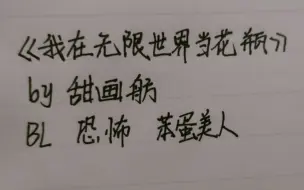 《我在无限世界当花瓶》
by 甜画舫
BL 恐怖 笨蛋美人